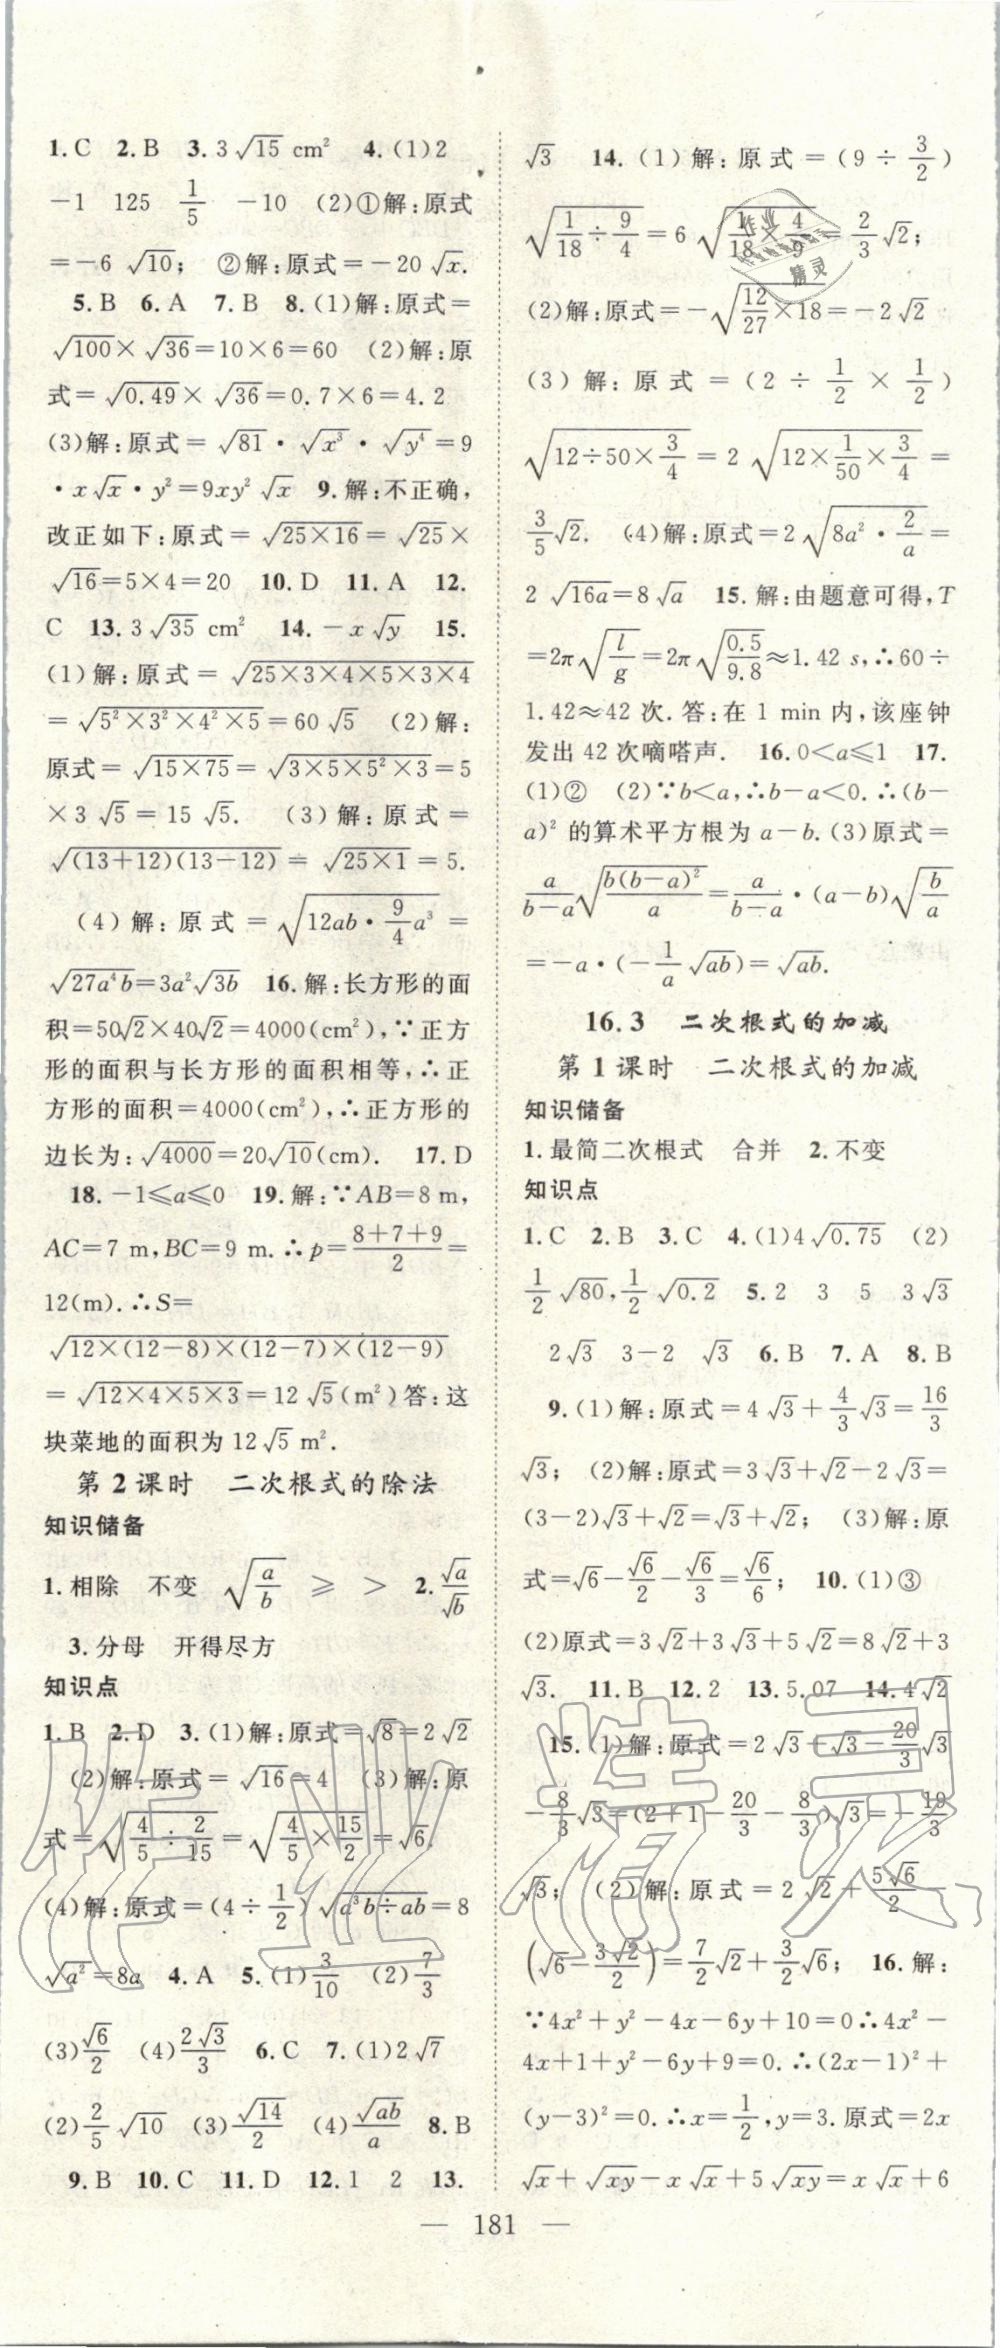 1.C 2.B 3.3√15 cm² 4.(1)2
-1 125 1/5 -10 (2)①解:原式
=-6√10; ②解:原式=-20√x.
5.B 6.A 7.B 8.(1)解:原式=
√100×√36=10×6=60 (2)解:原
式=√0.49×√36=0.7×6=4.2
(3)解:原式=√81·√x³·√y⁴=9
·x√x·y²=9xy²√x 9.解:不正确,
改正如下:原式=√(25×16)=√25×
√16=5×4=20 10.D 11.A 12.
C 13.3√35 cm² 14.-x√y 15.
(1)解:原式=√(25×3×4×5×3×4)
=√(5²×3²×4²×5)=60√5 (2)解:
原式=√(15×75)=√(3×5×5²×3)=5
×3√5=15√5. (3)解:原式=
√((13+12)(13-12))=√(25×1)=5.
(4)解:原式=√(12ab·9/4a³)=
√(27a⁴b)=3a²√3b 16.解:长方形的面
积=50√2×40√2=4000(cm²),∵正方
形的面积与长方形的面积相等,∴正
方形的面积=4000(cm²),∴正方形的
边长为:√4000=20√10(cm). 17.D
18.-1≤a≤0 19.解:∵AB=8 m,
AC=7 m,BC=9 m.∴p=(8+7+9)/2=
12(m).∴S=
√(12×(12-8)×(12-7)×(12-9))
=√(12×4×5×3)=12√5(m²)答:这
块菜地的面积为12√5 m².
第2课时 二次根式的除法
知识储备
1.相除 不变 √(a/b) ≥ > 2.√a/√b
3.分母 开得尽方
知识点
1.B 2.D 3.(1)解:原式=√8=2√2
(2)解:原式=√16=4 (3)解:原
式=√(4/5÷2/15)=√(4/5×15/2)=√6.
(4)解:原式=(4÷1/2)√(a³b÷ab)=8
√a²=8a 4.A 5.(1)3/10 (2)7/3
(3)√6/2 (4)2√3/3 6.C 7.(1)2√7
(2)2/5√10 (3)√14/2 (4)√ab/a 8.B
9.B 10.C 11.D 12.1 2 13.
√3 14.(1)解:原式=(9÷3/2)
√(1/18÷9/4)=6√(1/18×4/9)=2/3√2;
(2)解:原式=-√(12/27×18)=-2√2
(3)解:原式=(2÷1/2×1/2)
√(12÷50×3/4)=2√(12×1/50×3/4)=
3/5√2. (4)解:原式=2√(8a²·2/a)=
2√16a=8√a 15.解:由题意可得,T
=2π√(l/g)=2π√(0.5/9.8)≈1.42 s,∴60÷
1.42≈42次.答:在1 min内,该座钟
发出42次嘀嗒声. 16.0<a≤1 17.
(1)② (2)∵b<a,∴b-a<0.∴(b-
a)²的算术平方根为a-b.(3)原式=
a/(b-a)√(b(b-a)²/a)=a/(b-a)·(a-b)√(b/a)
=-a·(-1/a√ab)=√ab.
16.3 二次根式的加减
第1课时 二次根式的加减
知识储备
1.最简二次根式 合并 2.不变
知识点
1.C 2.B 3.C 4.(1)4√0.75 (2)
1/2√80,1/2√0.2 5.2 3 5 3√3
2√3 3-2 √3 6.B 7.A 8.B
9.(1)解:原式=4√3+4/3√3=16/3
√3; (2)解:原式=3√3+√2-2√3=
(3-2)√3+√2=√3+√2; (3)解:原
式=√6-√6/2-√6/3=√6/6; 10.(1)③
(2)原式=3√2+3√3+5√2=8√2+3
√3. 11.B 12.2 13.5.07 14.4√2
15.(1)解:原式=2√3+√3-20/3√3
-8/3√3=(2+1-20/3-8/3)√3=-19/3
√3; (2)解:原式=2√2+5√6/2-
(√6-3√2/2)=7/2√2+3/2√6; 16.解:
∵4x²+y²-4x-6y+10=0∴4x²-
4x+1+y²-6y+9=0.∴(2x-1)²+
(y-3)²=0.∴x=1/2,y=3.原式=2x
√x+√xy-x√x+5√xy=x√x+6
— 181 —
作业
精灵